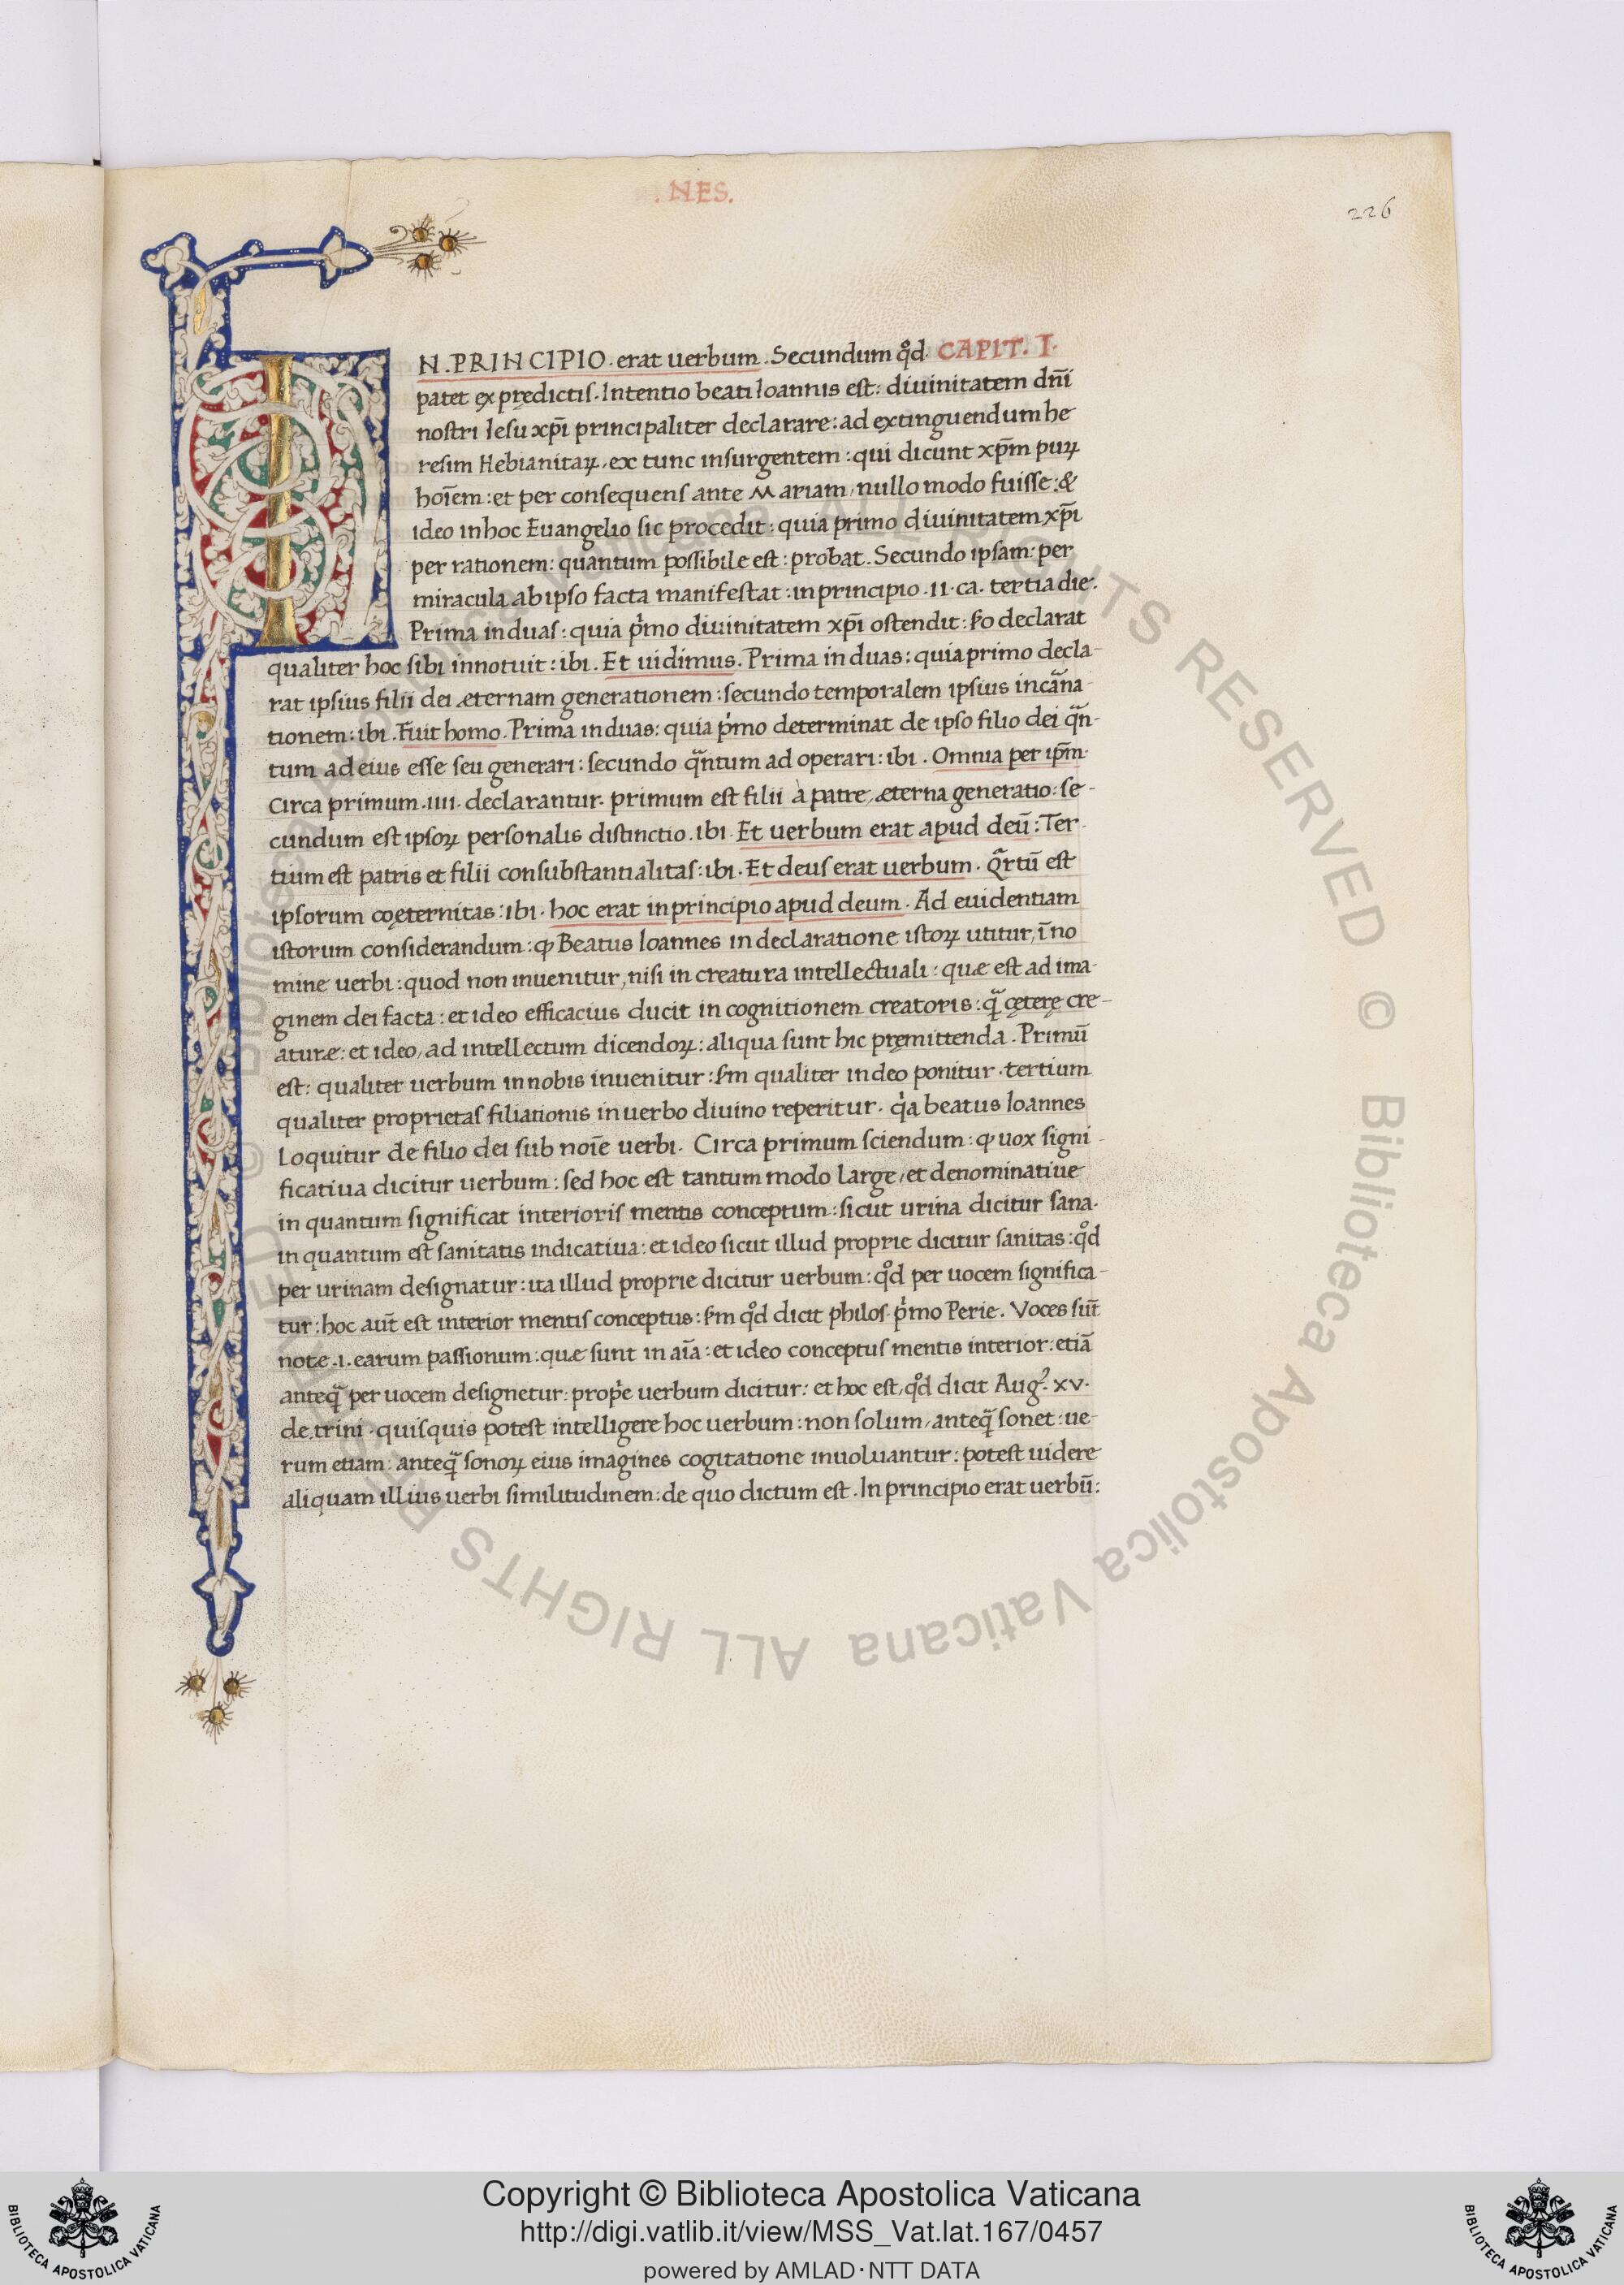 .NES.
226
IN.PRINCIPIO.erat uerbum.Secundum qͦd. CAPIT. I.
patet ex prędictis.Intentio beati Ioannis est: diuinitatem dn̄i
nostri Iesu xp̄i principaliter declarare: ad extinguendum he
resim Hebianitaꝝ, ex tunc insurgentem: qui dicunt xp̄m puꝝ
hoīem: et per consequens ante Mariam, nullo modo fuisse: &
ideo in hoc Euangelio sic procedit: quia primo diuinitatem xp̄i
per rationem: quantum possibile est: probat. Secundo ipsam: per
miracula ab ipso facta manifestat: in principio .II. ca. tertia die.
Prima in duas: quia pͥmo diuinitatem xp̄i ostendit: declarat
qualiter hoc sibi innotuit: ibi. Et uidimus. Prima in duas: quia primo decla-
rat ipsius filii dei æternam generationem: secundo temporalem ipsius incaᷓna-
tionem: ibi. Fuit homo. Prima in duas: quia pͥmo determinat de ipso filio dei qᷓn-
tum ad eius esse seu generari: secundo qᷓntum ad operari: ibi. Omnia per ip̄m.
Circa primum .IIII. declarantur. primum est filii à patre, æterna generatio: se-
cundum est ipsoꝝ personalis distinctio. ibi. Et uerbum erat apud deū: Ter
tium est patris et filii consubstantialitas: ibi. Et deus erat uerbum. Qᷓrtū est
ipsorum coęternitas: ibi. hoc erat in principio apud deum. Ad euidentiam
istorum considerandum: ꝙ Beatus Ioannes in declaratione istoꝝ utitur, ī no
mine uerbi: quod non inuenitur, nisi in creatura intellectuali: quæ est ad ima-
ginem dei facta: et ideo efficacius ducit in cognitionem creatoris: qᷓ cęterę cre-
aturæ: et ideo, ad intellectum dicendoꝝ: aliqua sunt hic pręmittenda. Primū
est: qualiter uerbum in nobis inuenitur: qualiter in deo ponitur. tertium
qualiter proprietas filiationis in uerbo diuino reperitur. qͥa beatus Ioannes
Loquitur de filio dei sub noīe uerbi. Circa primum sciendum: ꝙ uox signi-
ficatiua dicitur uerbum: sed hoc est tantum modo large, et denominatiue
in quantum significat interioris mentis conceptum: sicut urina dicitur sana.
in quantum est sanitatis indicatiua: et ideo sicut illud proprie dicitur sanitas: qͦd
per urinam designatur: ita illud proprie dicitur uerbum: qͦd per uocem significa-
tur: hoc aut̄ est interior mentis conceptus: qͦd dicit philos. pͥmo Perie. Voces sūt
note .i. earum passionum: quæ sunt in aīa: et ideo conceptus mentis interior: etiā
anteqᷓ per uocem designetur: prop̄e uerbum dicitur: et hoc est, qͦd dicit Aug. xv.
de.trini. quisquis potest intelligere hoc uerbum: non solum, anteqᷓ sonet: ue-
rum etiam: anteqᷓ sonoꝝ eius imagines cogitatione inuoluantur: potest uidere
aliquam illius uerbi similitudinem: de quo dictum est. In principio erat uerbū:
© Biblioteca Apostolica Vaticana ALL RIGHTS RESERVED © Biblioteca Apostolica Vaticana ALL RIGHTS RESERVED
BIBLIOTECA APOSTOLICA VATICANA
Copyright © Biblioteca Apostolica Vaticana
http://digi.vatlib.it/view/MSS_Vat.lat.167/0457
powered by AMLAD·NTT DATA
BIBLIOTECA APOSTOLICA VATICANA